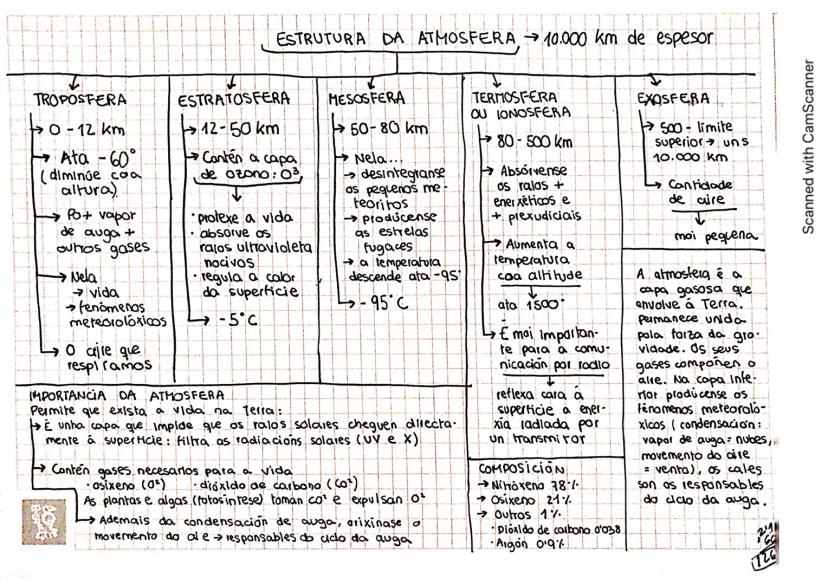 ESTRUTURA DA ATMOSFERA → 10.000 km de espesor
TROPOSFERA
→ 0-12 km
→ Ata -60°
(diminúe coa
altura)
→ Po + vapor
de auga +
outros gases
→ Nela
→ vida
→ fenómenos
meteorolóxicos
→ O aire que
respiramos
ESTRATOSFERA
→ 12-50 km
→ Contén a capa
de ozono: O³
· protexe a vida
· absorve os
raios ultravioleta
nocivos
· regula a calor
da superficie
→ -5°C
MESOSFERA
→ 50-80 km
→ Nela...
→ desintégranse
os pequenos me-
teoritos
→ prodúcense
as estrelas
fugaces
→ a temperatura
descende ata -95°
→ -95°C
TERMOSFERA
OU IONOSFERA
→ 80-500 km
→ Absórvense
os raios +
enerxéticos e
+ prexudiciais
→ Aumenta a
temperatura
coa altitude
ata 1500°
→ É moi importan-
te para a comu-
nicación por radio
reflexa cara á
superficie a ener-
xía radiada por
un transmisor
EXOSFERA
→ 500 - límite
superior → uns
10.000 km
→ Cantidade
de aire
moi pequena
A atmosfera é a
capa gasosa que
envolve á Terra.
Permanece unida
pola forza da gra-
vidade. Os seus
gases compoñen o
aire. Na capa infe-
rior prodúcense os
fenómenos meteoroló-
xicos (condensación:
vapor de auga = nubes,
movemento do aire
= vento), os cales
son os responsables
do ciclo da auga.
IMPORTANCIA DA ATMOSFERA
Permite que exista a vida na terra:
→ É unha capa que impide que os raios solares cheguen directa-
mente á superficie: filtra as radiacións solares (UV e X)
→ Contén gases necesarios para a vida
· osíxeno (O²) · dióxido de carbono (CO²)
As plantas e algas (fotosíntese) toman CO² e expulsan O²
→ Ademais da condensación de auga, orixínase o
movemento do aire → responsables do ciclo da auga
COMPOSICIÓN
→ Nitróxeno 78%
→ Osíxeno 21%
→ Outros 1%
· Dióxido de carbono 0'038
· Argón 0'9%
126
Scanned with CamScanner